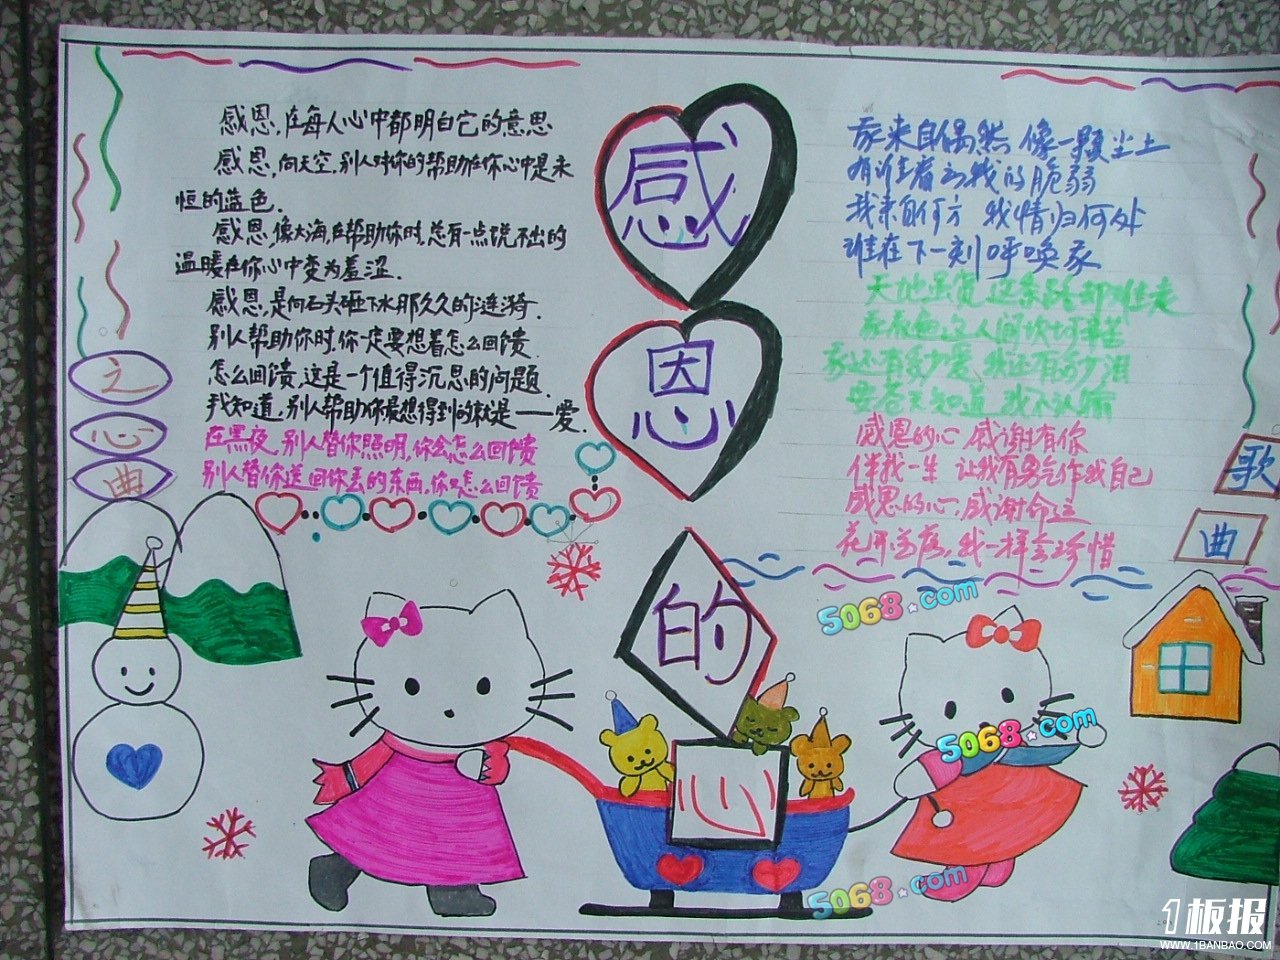 感恩的心
之心曲
感恩,在每人心中都明白它的意思
感恩,向天空,别人对你的帮助在你心中是永
恒的蓝色.
感恩,像大海,在帮助你时,总有一点说不出的
温暖在你心中变为羞涩.
感恩,是向石头砸下水那久久的涟漪.
别人帮助你时,你一定要想着怎么回馈.
怎么回馈,这是一个值得沉思的问题.
我知道,别人帮助你最想得到的就是——爱.
在黑夜,别人替你照明,你会怎么回馈
别人替你送回你丢的东西,你又怎么回馈
歌曲
我来自偶然 像一颗尘土
有谁看到我的脆弱
我来自何方 我情归何处
谁在下一刻呼唤我
天地虽宽 这条路却难走
我看遍这人间坎坷辛苦
我还有多少爱 我还有多少泪
要苍天知道 我不认输
感恩的心 感谢有你
伴我一生 让我有勇气作我自己
感恩的心,感谢命运
花开花落,我一样会珍惜
5068.com
5068.com
5068.com
1板报
WWW.1BANBAO.COM